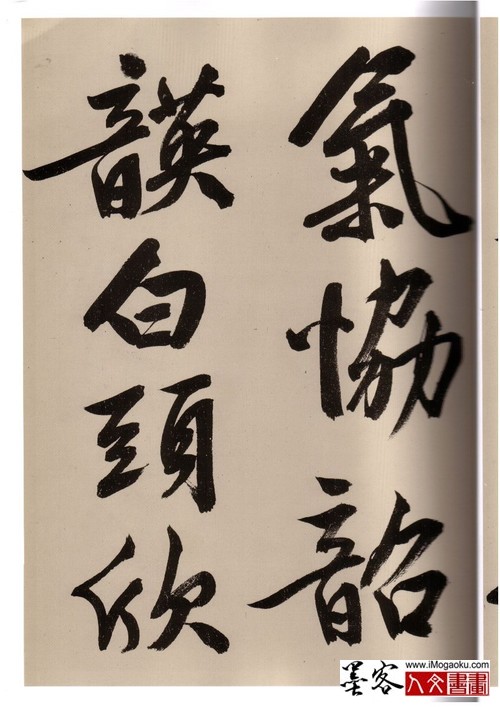 氣恊韶
韺白頭欣
www.iMogaoku.com
墨客 人文書畫